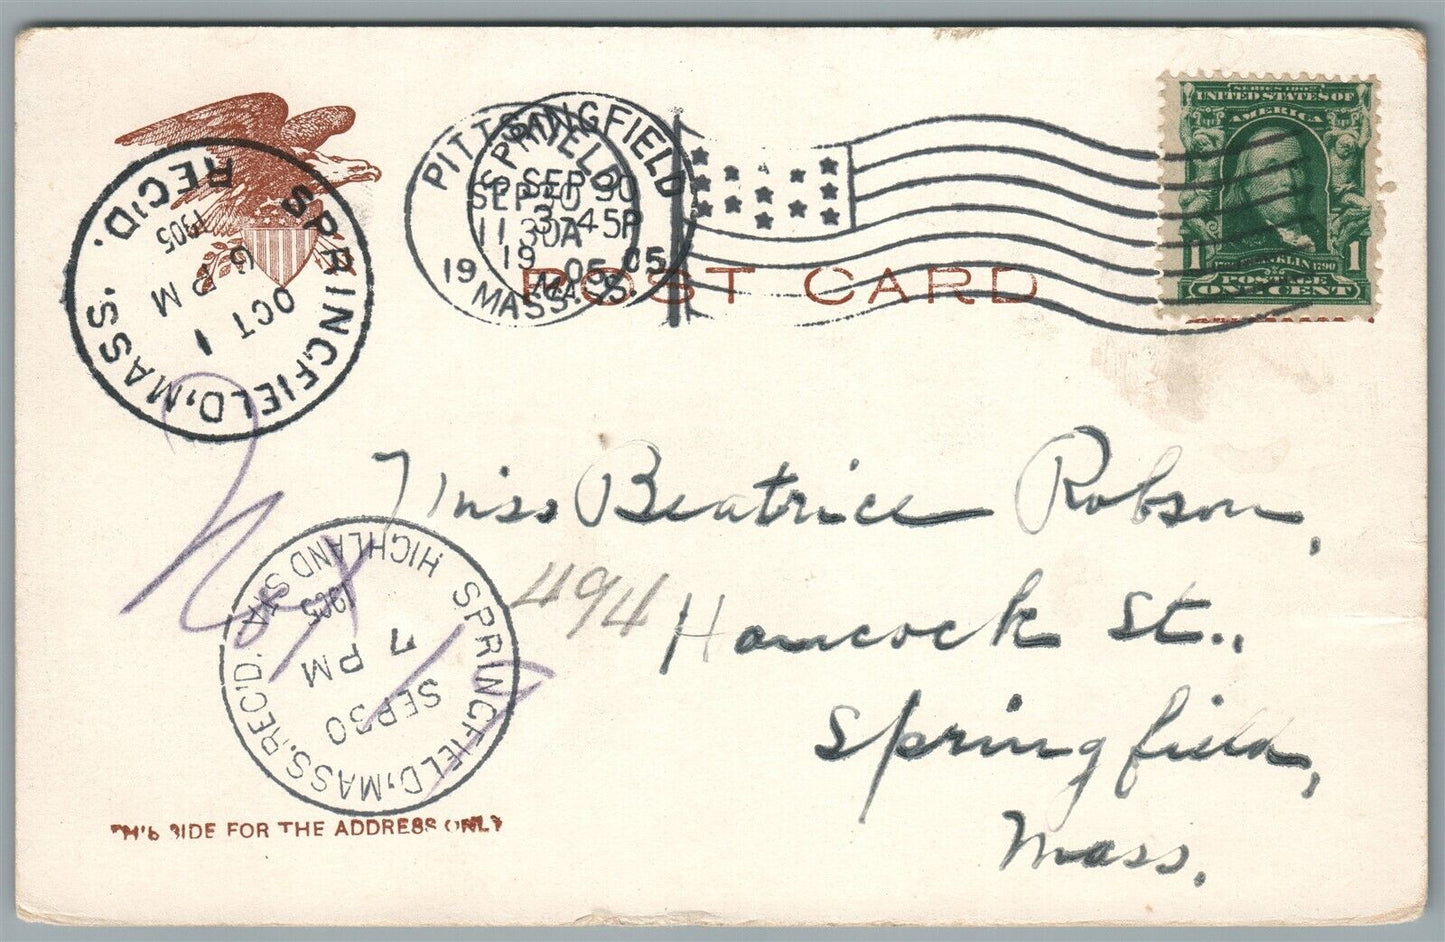 SERIES 1902
UNITED STATES OF
AMERICA
1 FRANKLIN 1790 1
POSTAGE
ONE CENT
PITTSFIELD
SEP 30
11 30A
1905
MASS.
SPRINGFIELD
SEP 30
3 45P
1905
MASS.
POST CARD
SPRINGFIELD, MASS.
REC'D.
OCT 1
6 PM
1905
Miss Beatrice Robson,
494 Hancock St.,
Springfield,
Mass.
SPRINGFIELD, MASS. REC'D.
HIGHLAND STA.
SEP 30
7 PM
1905
THIS SIDE FOR THE ADDRESS ONLY